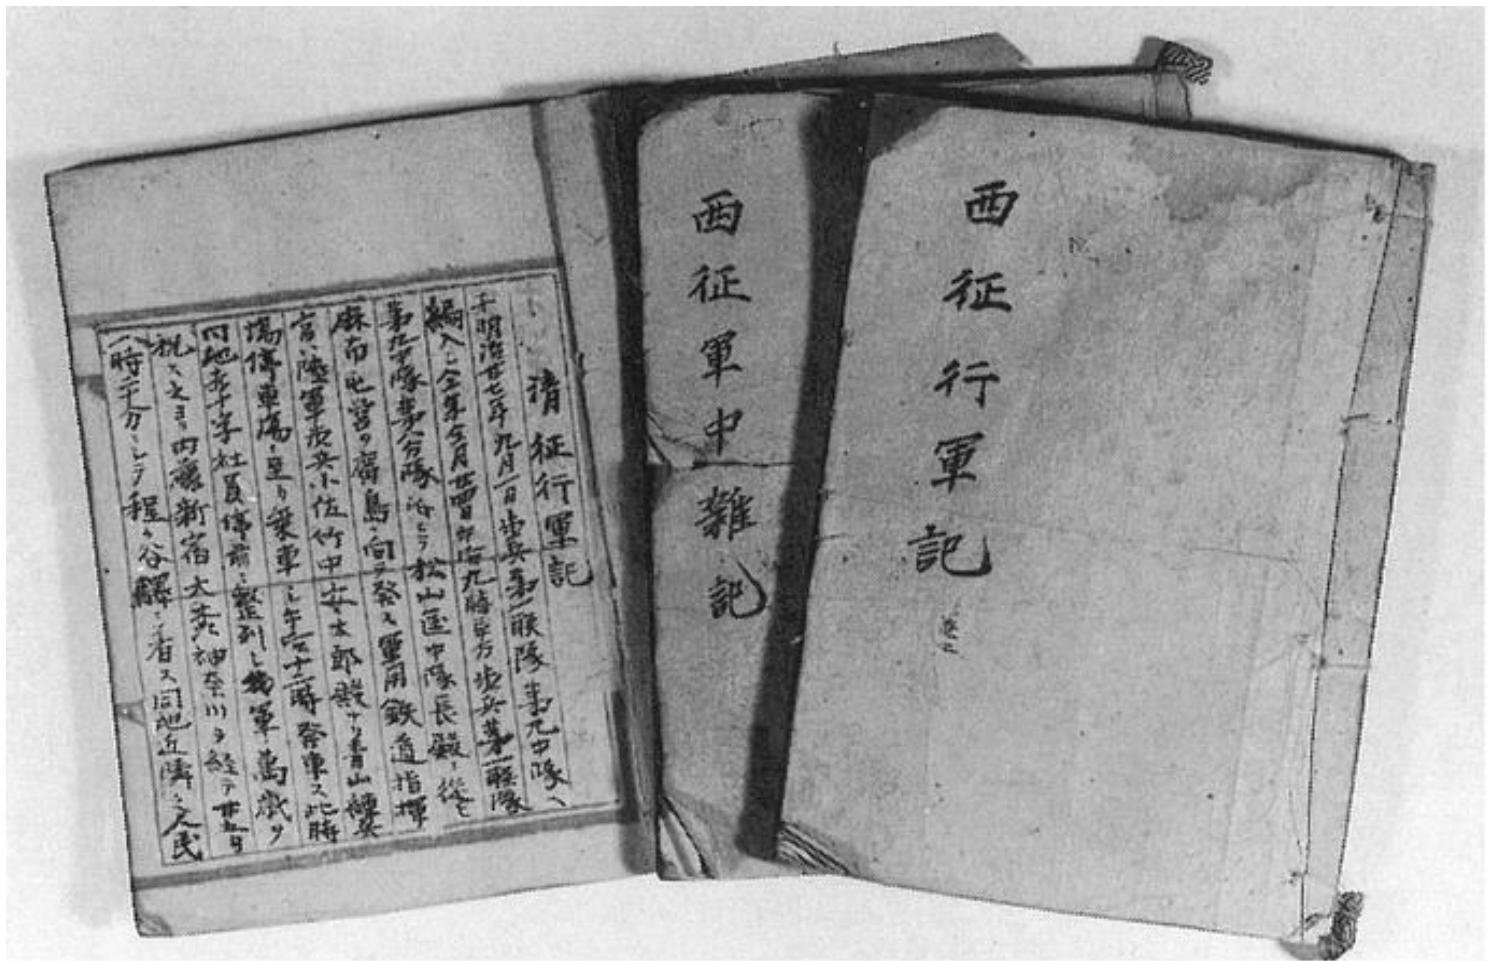 西征行軍記
西征軍中雑記
清征行軍記
于明治廿七年九月一日歩兵第一聯隊第九中隊ヘ
編入シ仝年仝月廿四日午后九時半方歩兵第一聯隊
第九中隊第八分隊 松山區中隊長殿ニ從ヒ
麻布屯営ヲ廣島ニ向テ発ス軍用鉄道指揮
官ハ陸軍歩兵少佐竹中安太郎殿ナリ青山練兵
場停車場ニ至リ乗車シ午后十二時発車ス此時
同地赤十字社員停車前ニ整列シ我軍萬歳ヲ
祝ス之ヨリ内藤新宿大森神奈川ヲ経テ廿五日
八時二十分ニシテ程ヶ谷驛ニ着ス同地近隣之人民